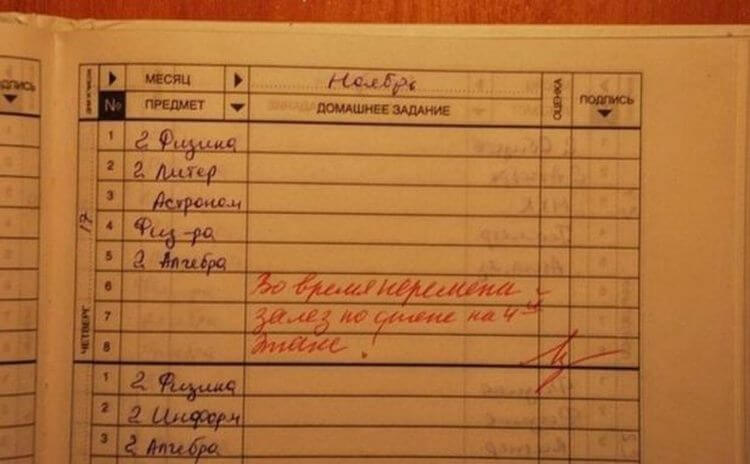 ДПИСЬ
МЕСЯЦ Ноябрь ОЦЕНКА ПОДПИСЬ
№ ПРЕДМЕТ ДОМАШНЕЕ ЗАДАНИЕ
ЧЕТВЕРГ 17
1 2 Физика
2 2 Литер
3 Астроном
4 Физ-ра
5 2 Алгебра
6 Во время перемены
7 залез по стене на 4-й
8 Этаж!
1 2 Физика
2 2 Информ
3 2 Алгебра